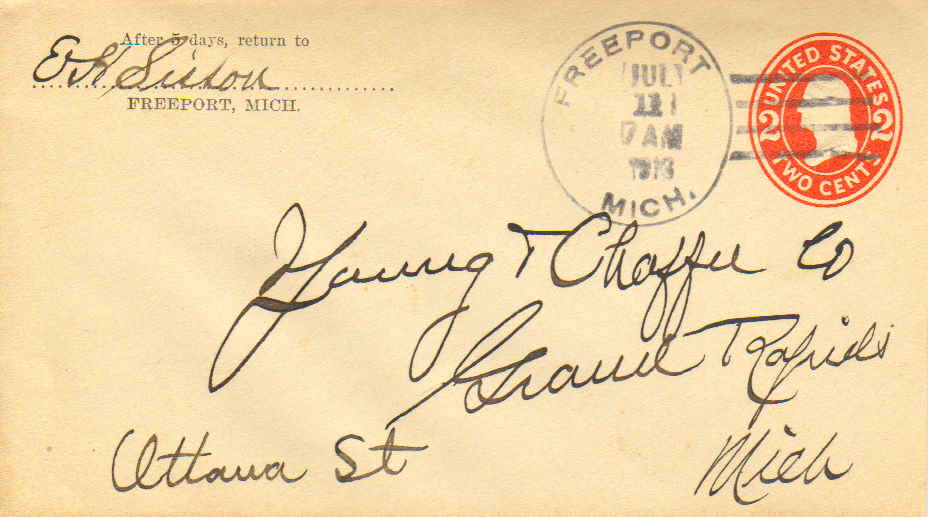 After 5 days, return to
E H Sisson
FREEPORT, MICH.
FREEPORT
JUL
11
7 AM
MICH.
UNITED STATES
2 2
TWO CENTS
Young & Chaffee Co
Grand Rapids
Mich
Ottawa St